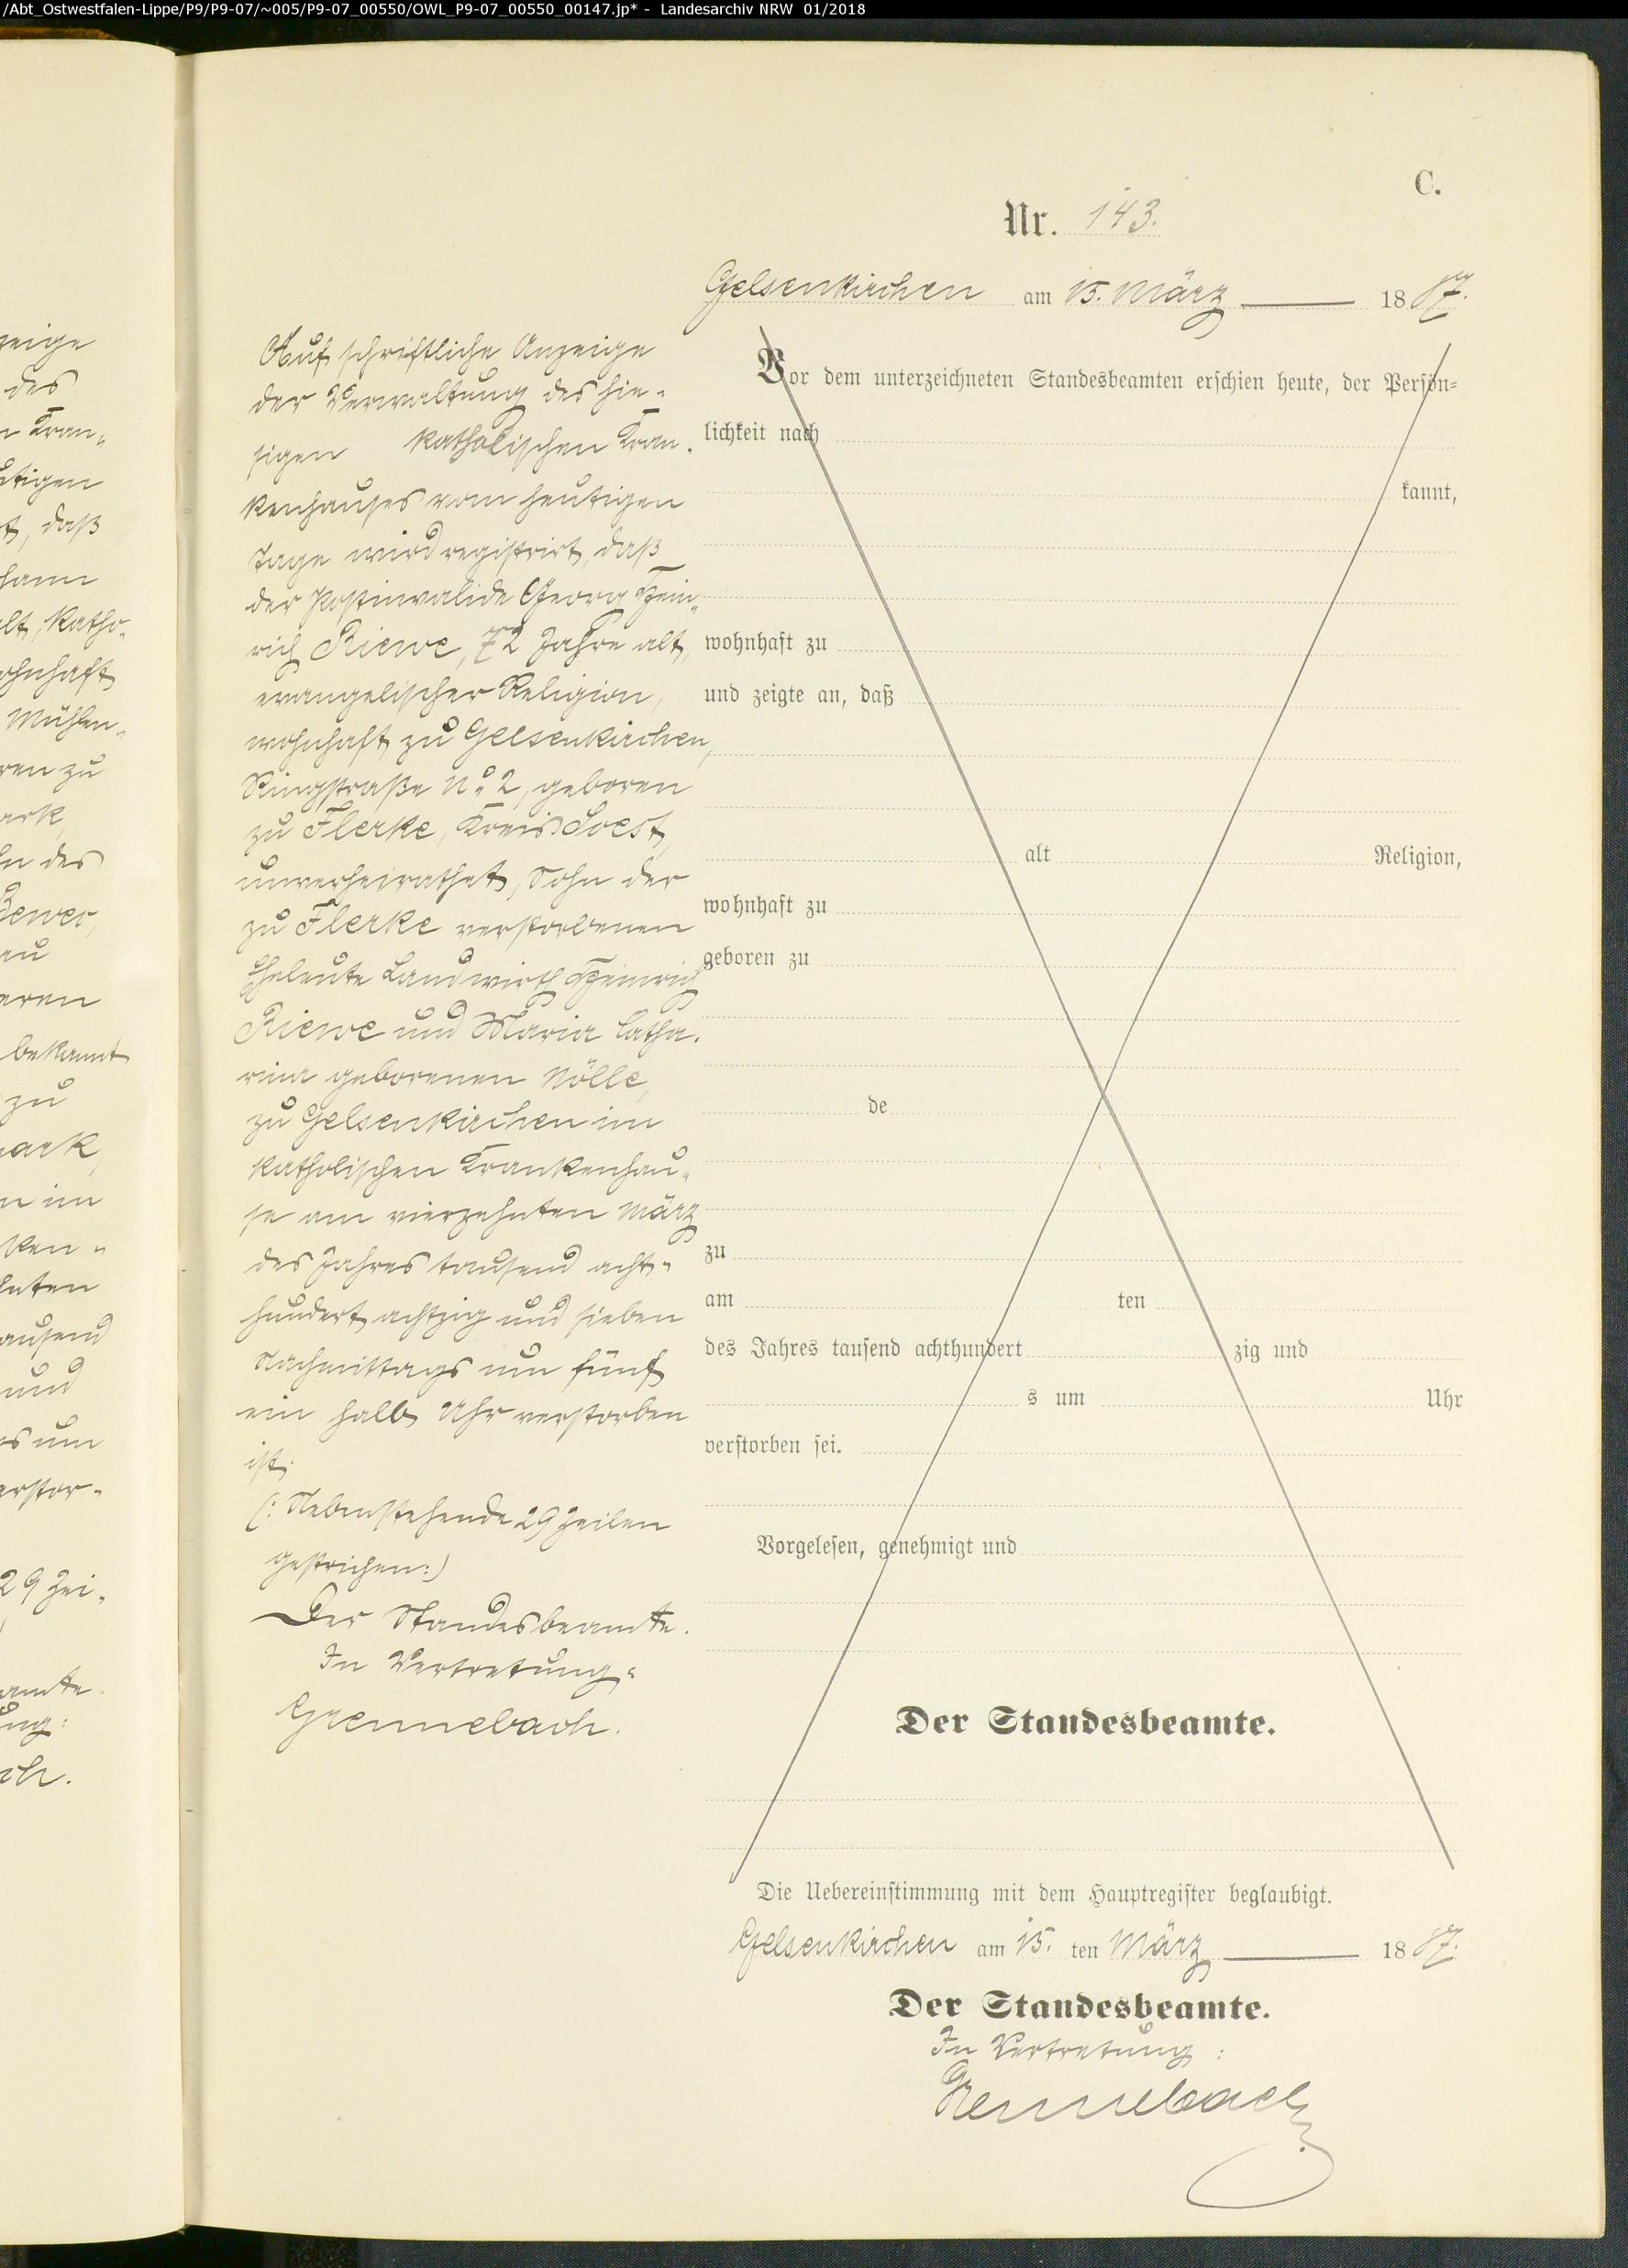 /Abt_Ostwestfalen-Lippe/P9/P9-07/~005/P9-07_00550/OWL_P9-07_00550_00147.jp* - Landesarchiv NRW 01/2018
zeige
des
n Kran„
utigen
t, daß
hann
alt, katho„
ohnhaft
Mühlen„
ren zu
ark,
hn des
Bewer,
au
eren
bekannt
zu
ark,
n im
ken„
hnten
ausend
und
s um
erstor„
29 Zei„
amte.
ung:
ch.
C.
Nr. 143.
Gelsenkirchen am 15. März 1887.
Auf schriftliche Anzeige
der Verwaltung des hie„
sigen katholischen Kran„
kenhauses vom heutigen
Tage wird registrirt, daß
der Postinvalide Georg Hein„
rich Riewe, 72 Jahre alt,
evangelischer Religion,
wohnhaft zu Gelsenkirchen,
Ringstraße No 2, geboren
zu Flerke, Kreis Soest,
unverheirathet, Sohn der
zu Flerke verstorbenen
Eheleute Landwirth Heinrich
Riewe und Maria Catha„
rina geborenen Nölle,
zu Gelsenkirchen im
katholischen Krankenhau„
se am vierzehnten März
des Jahres tausend acht„
hundert achtzig und sieben
Nachmittags um fünf
ein halb Uhr verstorben
ist.
(: Nebenstehende 29 Zeilen
gestrichen:)
Der Standesbeamte.
In Vertretung:
Grennebach.
Vor dem unterzeichneten Standesbeamten erschien heute, der Persön=
lichkeit nach
kannt,
wohnhaft zu
und zeigte an, daß
alt Religion,
wohnhaft zu
geboren zu
de
zu
am ten
des Jahres tausend achthundert zig und
s um Uhr
verstorben sei.
Vorgelesen, genehmigt und
Der Standesbeamte.
Die Uebereinstimmung mit dem Hauptregister beglaubigt.
Gelsenkirchen am 15. ten März 1887.
Der Standesbeamte.
In Vertretung:
Grennebach